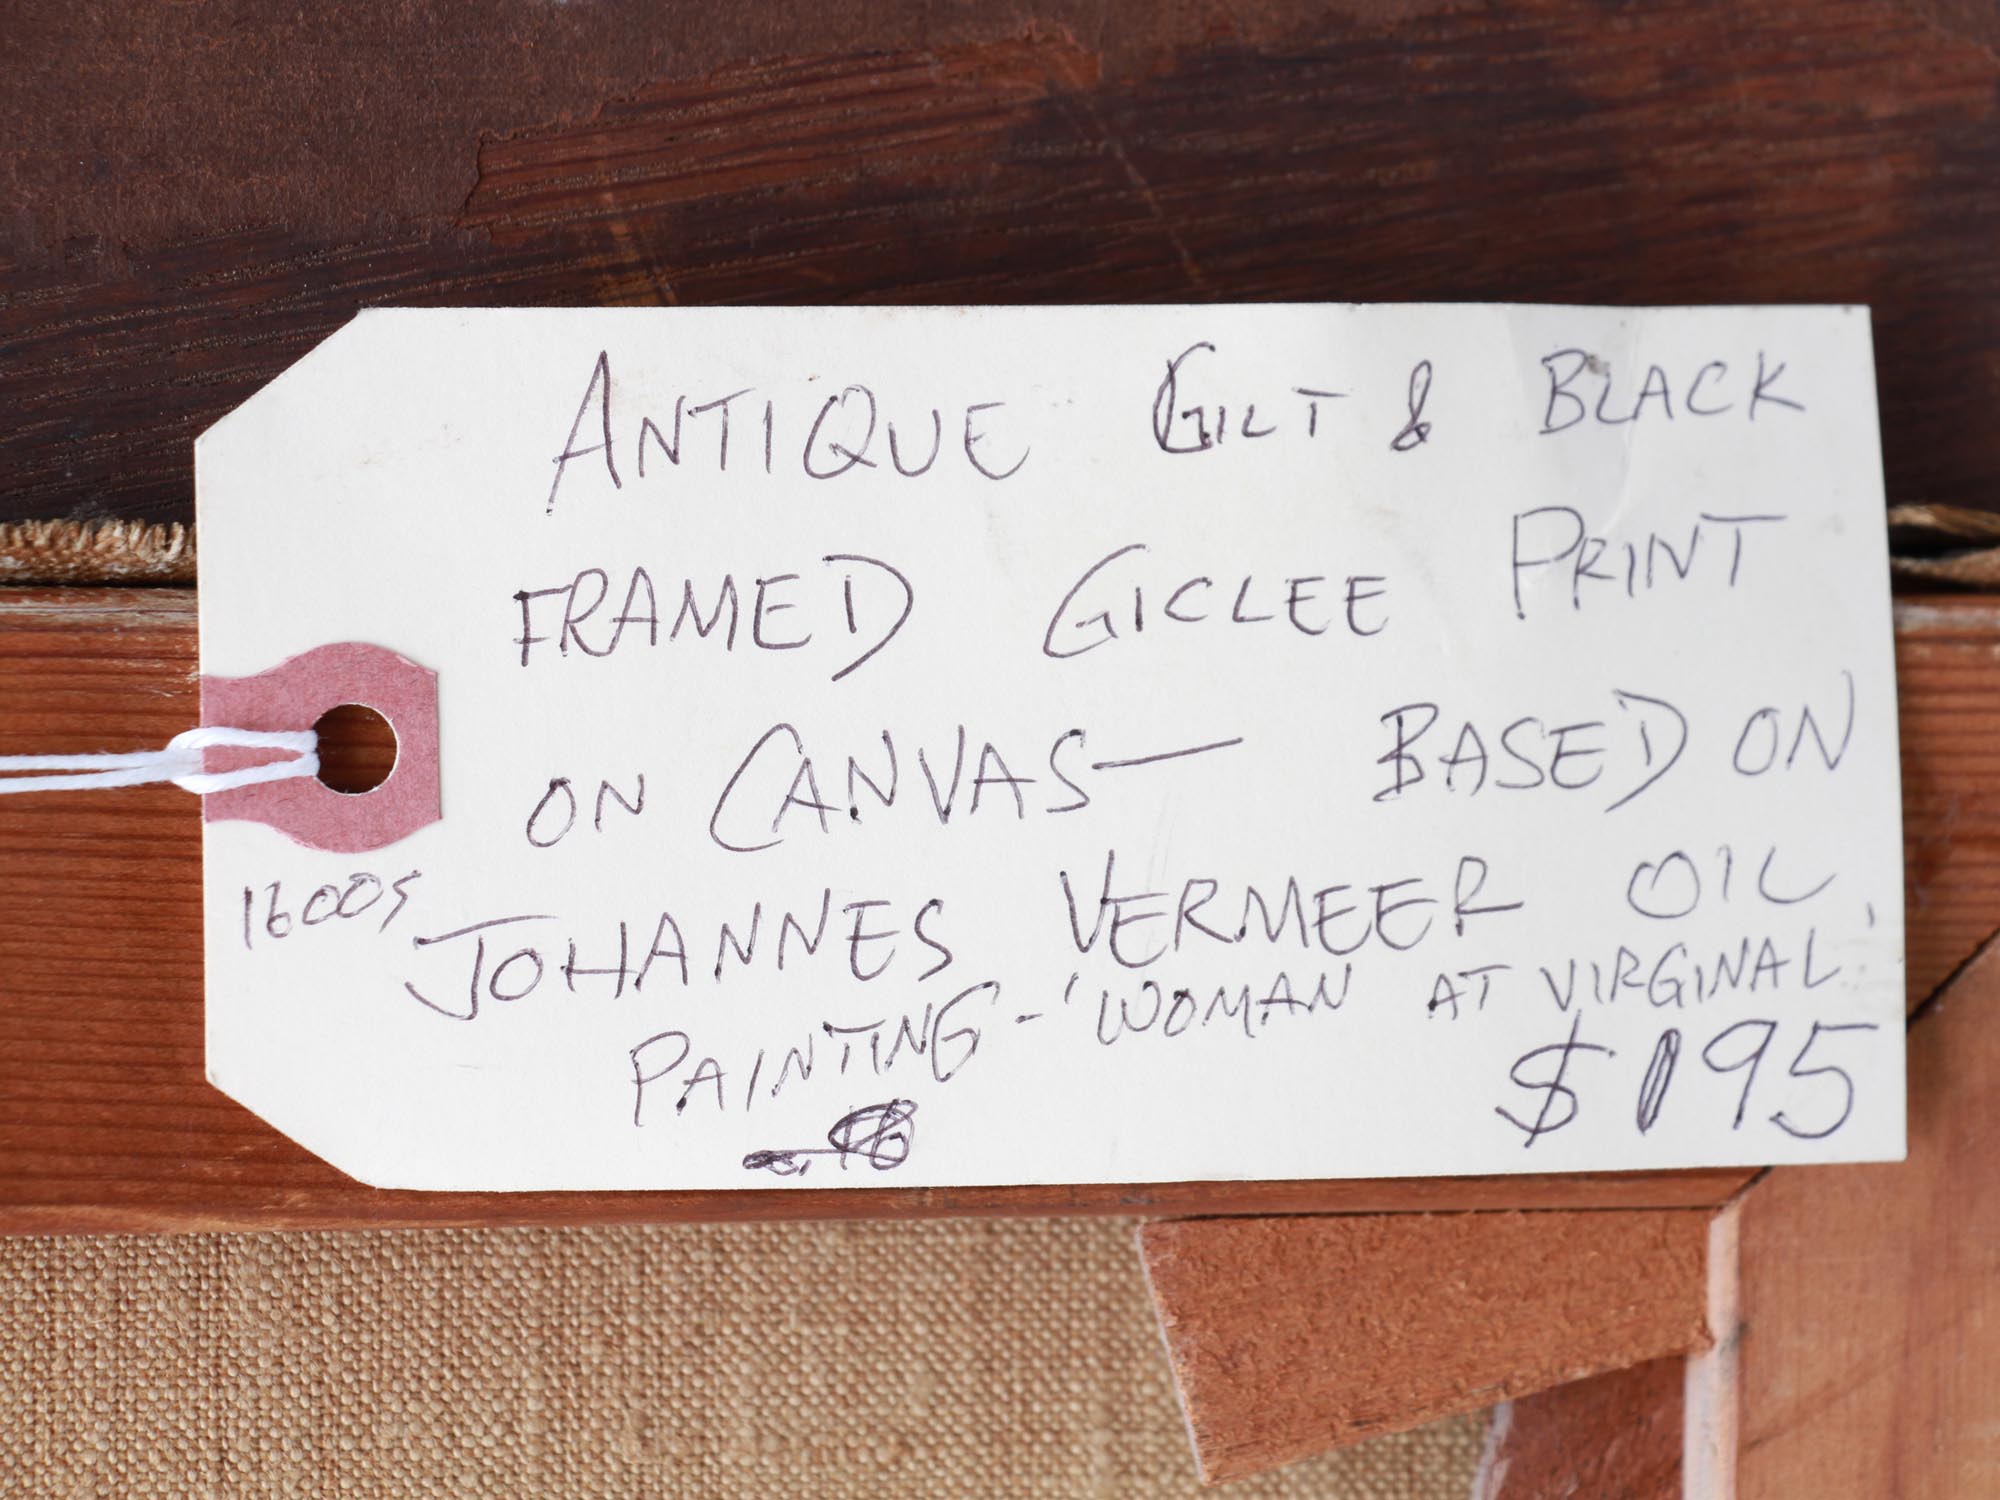 ANTIQUE GILT & BLACK
FRAMED GICLEE PRINT
ON CANVAS— BASED ON
1600s JOHANNES VERMEER OIL
PAINTING - 'WOMAN AT VIRGINAL'
$195